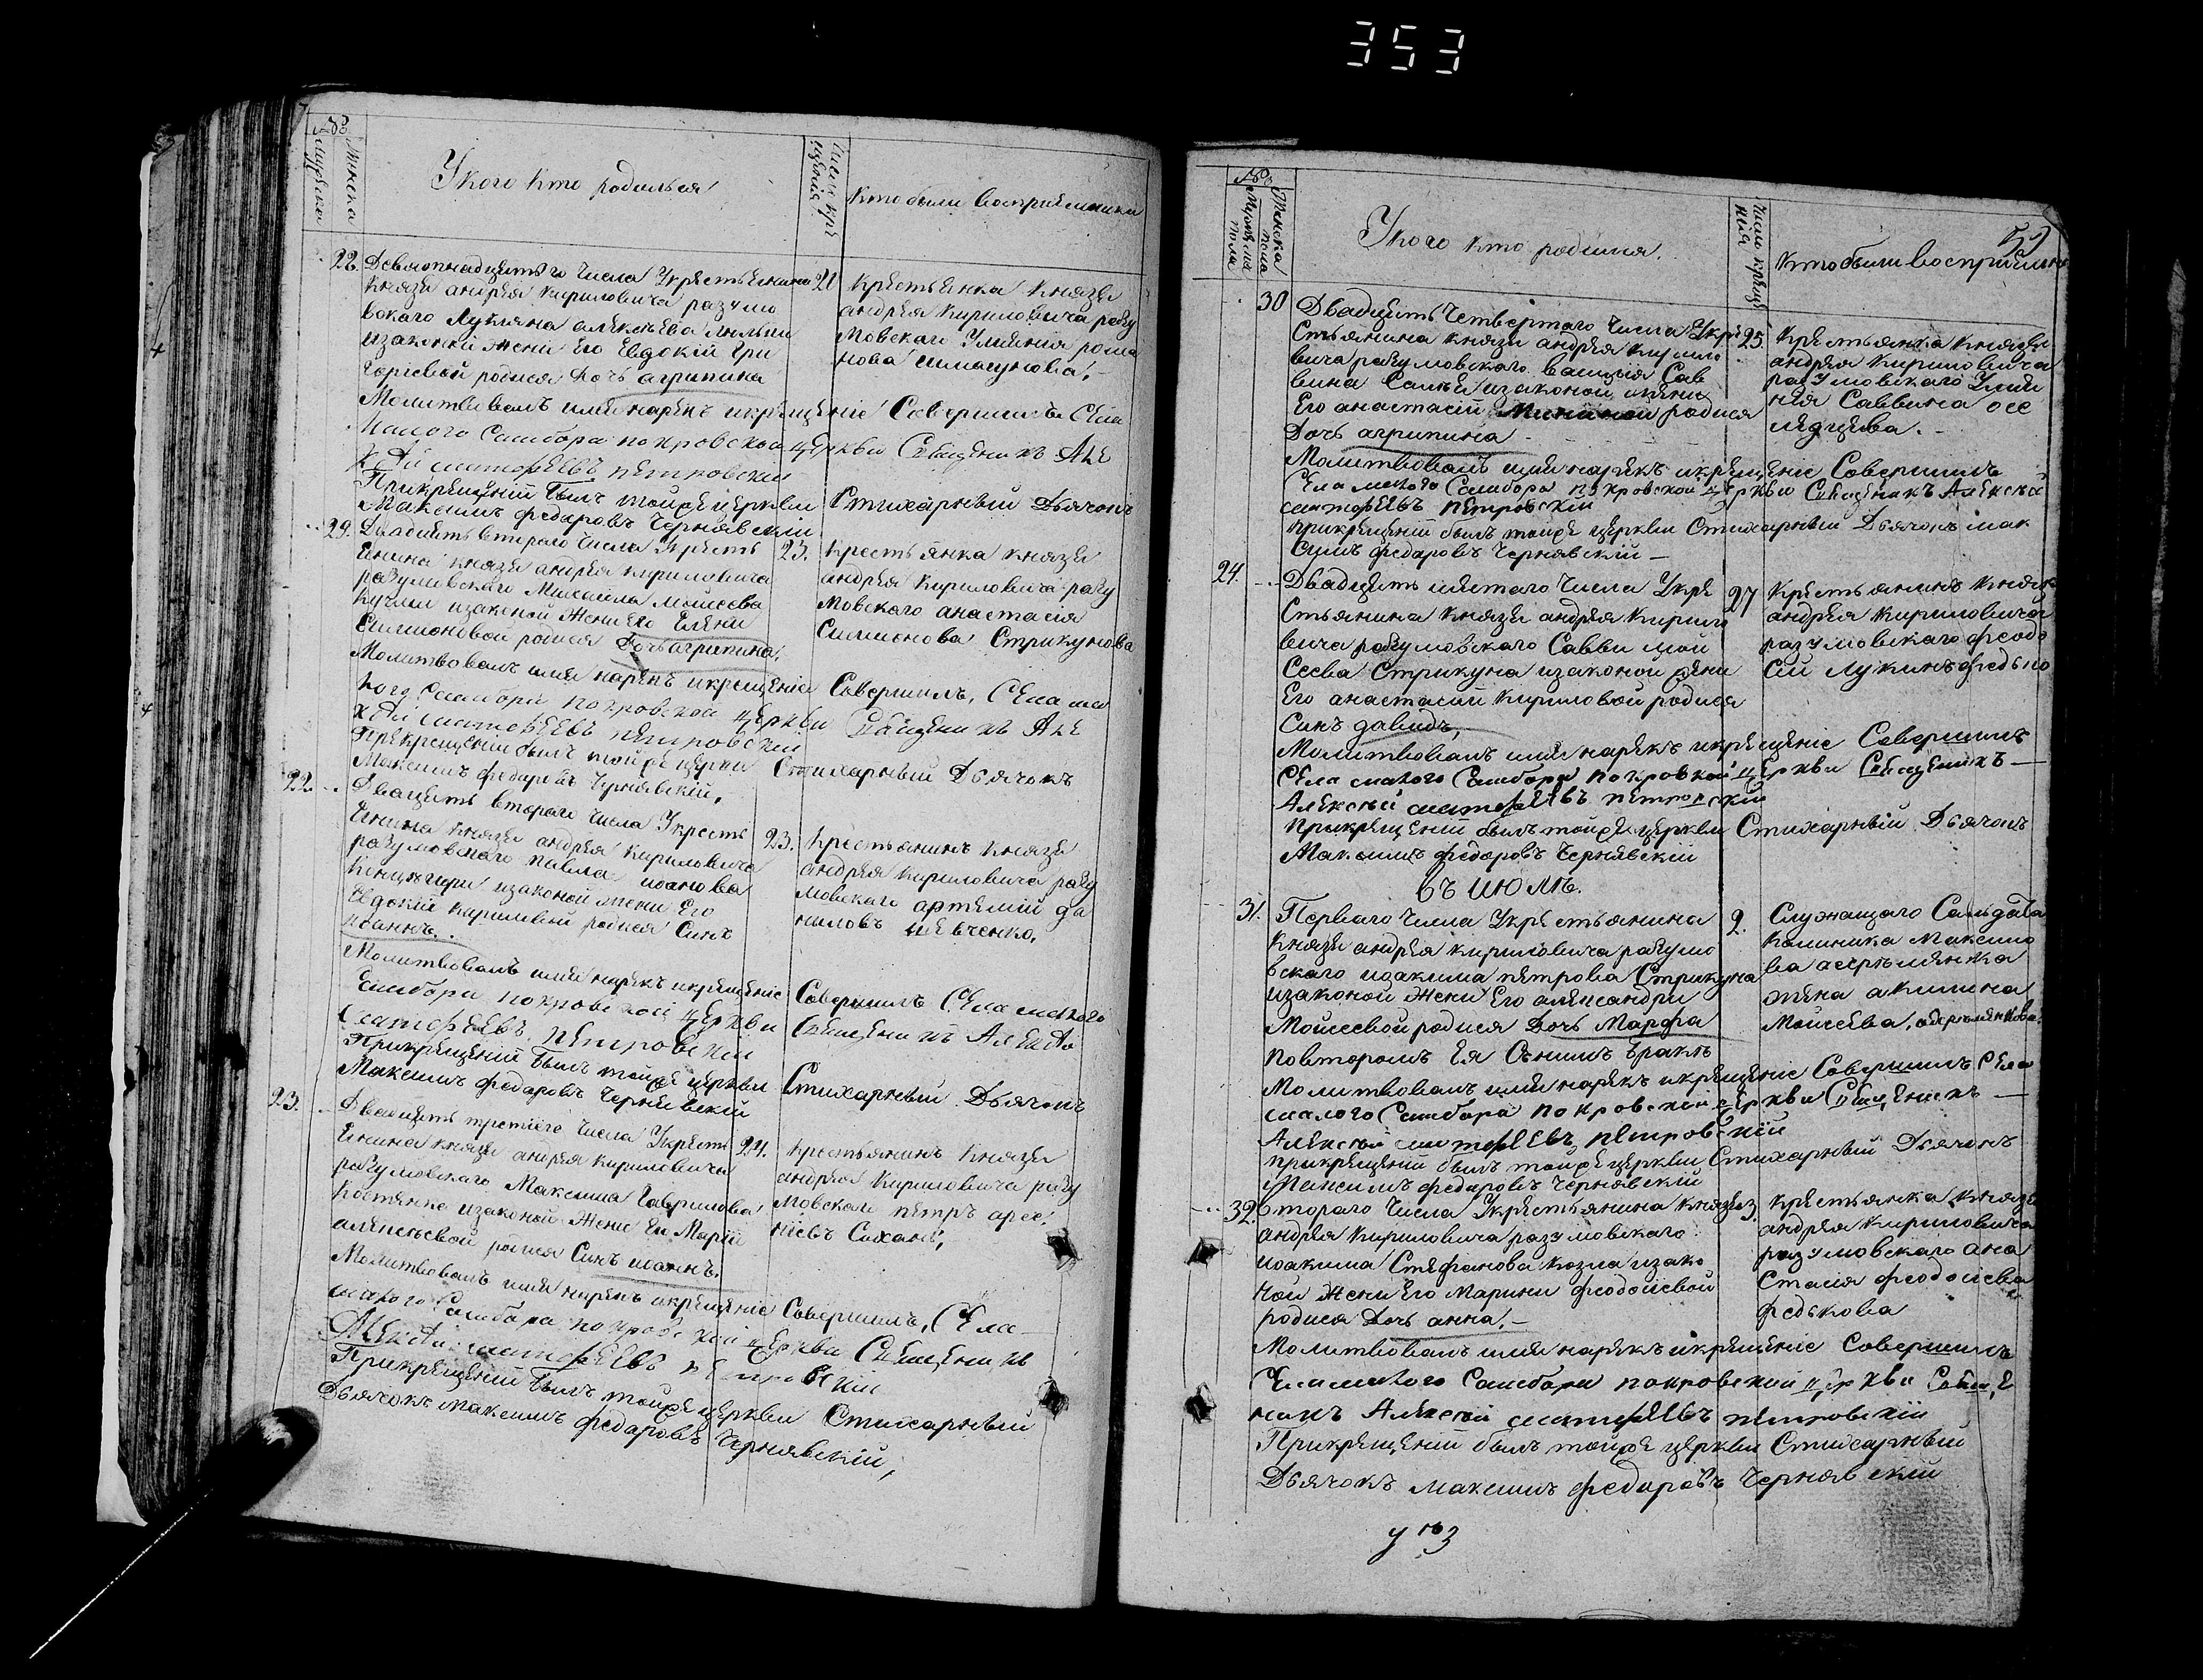 353
№
мужеска
женска
Укого кто родилься
число кре
щенія
кто были восприемники
22.
Девятнадцять го числа Укрестьянина
21
князя андрея кириловича разумо
вского Лукяна алексѣева
изаконой жени Его Евдокіи Гри
горіевой родися дочь агрипина
крестьянка князя
андрея Кириловича разу
мовскаго Улияния рома
нова
Молитвовалъ имя нарекъ икрещеніе Совершилъ Села
Малого Самбора покровской церкви Священикъ Але
ксѣй матфѣевъ петровскій
Прикрещеніи былъ тойже церкви Стихарный Дьячокъ
Максимъ федаровъ Чернявскій
29.
Двадцять второго числа Укресть
23.
янина князя андрея кириловича
разумовского Михаила моисеева
Кучми изаконой жени Его Елени
Симионовой родися дочь агрипина.
крестьянка князя
андрея Кириловича разу
мовского анастасія
Симионова Стрикунова
Молитвовалъ имя нарекъ икрещеніе Совершилъ, Села ма
лого Самбора покровской церкви Священикъ Але
ксѣй матфѣевъ петровскій
Прикрещеніи былъ тойже церкви Стихарный Дьячокъ
Максимъ федаровъ Чернявскій,
22
Двадцять второго числа Укресть
23.
янина князя андрея Кириловича
разумовского павла иоанова
изаконой жени Его
Евдокіи Кириловой родися Синъ
иоаннъ.
крестьянинъ князя
андрея Кириловича разу
мовского артемій да
ниловъ шевченко.
Молитвовалъ имя нарекъ икрещеніе Совершилъ Села малого
Самбора покровской церкви Священикъ Алексѣй
матфѣевъ петровскій
Прикрещеніи былъ тойже церкви Стихарный Дьячокъ
Максимъ федаровъ Чернявскій
23.
Двадцять третіего числа Укресть
24.
янина князя андрея кириловича
разумовского Максима Гаврилова
Костенка изаконой жени Ей Маріи
алексѣевой родися Синъ иоаннъ.
крестьянинъ князя
андрея Кириловича разу
мовского петръ арсе
ніевъ Сахань,
Молитвовалъ имя нарекъ икрещеніе Совершилъ, Села
малого Самбора покровской церкви Священикъ
Алексѣй матфѣевъ петровскій
Прикрещеніи былъ тойже церкви Стихарный
Дьячокъ максимъ федаровъ Чернявскій,
№
Мужеска
пола
Женска
пола
Укого кто родился.
число креще
нія
кто были восприемни
59
30
Двадцять Четвертого числа Укре
25.
стьянина князя андрея кирило
вича разумовского василія Сав
вина изаконой жени
Его анастасіи родися
Дочь агрипина
крестьянка князя
андрея кириловича
разумовского Улия
ния Саввина осе
ледцева.
Молитвовалъ имя нарекъ икрещеніе Совершилъ
Села малого Самбора покровской церкви Священикъ Алексѣй
матфѣевъ петровскій
прикрещеніи былъ тойже церкви Стихарный Дьячокъ мак
симъ федаровъ Чернявскій
24.
Двадцять шестаго числа Укре
27
стьянина князя андрея кирило
вича разумовского Савви мои
сеева Стрикуна изаконой жени
Его анастасіи Кириловой родися
Синъ давидъ,
крестьянинъ князя
андрея кириловича
разумовского феодо
сій Лукинъ федько
Молитвовалъ имя нарекъ икрещеніе Совершилъ
Села малого Самбора покровской церкви Священикъ
Алексѣй матфѣевъ петровскій
прикрещеніи былъ тойже церкви Стихарный Дьячокъ
Максимъ федаровъ Чернявскій
въ июлѣ.
31.
Перваго числа Укрестьянина
2.
князя андрея кириловича разумо
вского иоакима петрова Стрикуна
изаконой жени Его александри
Моисеевой родися Дочь Марфа
повторомъ Ея Снимъ бракѣ
Служащаго Салдата
калиника Максимо
ва
жена акилина
Моисеева,
Молитвовалъ имя нарекъ икрещеніе Совершилъ Села
малого Самбора покровской церкви Священикъ
Алексѣй матфѣевъ петровскій
прикрещеніи былъ тойже церкви Стихарный Дьячокъ
Максимъ федаровъ Чернявскій
32.
второго числа Укрестьянина князя
3.
андрея Кириловича разумовского
иоакима Стефанова козла изако
ной жени Его Марини феодосіевой
родися дочь анна.
крестьянка князя
андрея кириловича
разумовского ана
стасія феодосіева
федькова
Молитвовалъ имя нарекъ икрещеніе Совершилъ
Села малого Самбора покровской церкви Свяще
никъ Алексѣй матфѣевъ петровскій
Прикрещеніи былъ тойже церкви Стихарный
Дьячокъ максимъ федаровъ Чернявскій